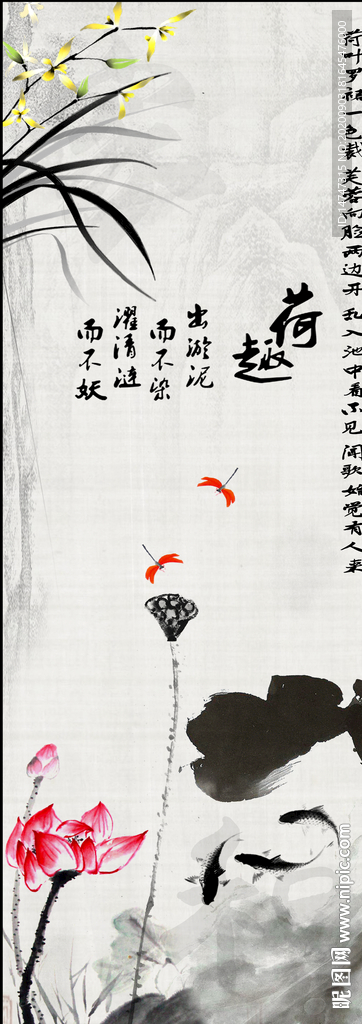 荷叶罗裙一色裁芙蓉向脸两边开乱入池中看不见闻歌始觉有人来
荷趣
出淤泥
而不染
濯清涟
而不妖
昵图网 www.nipic.com